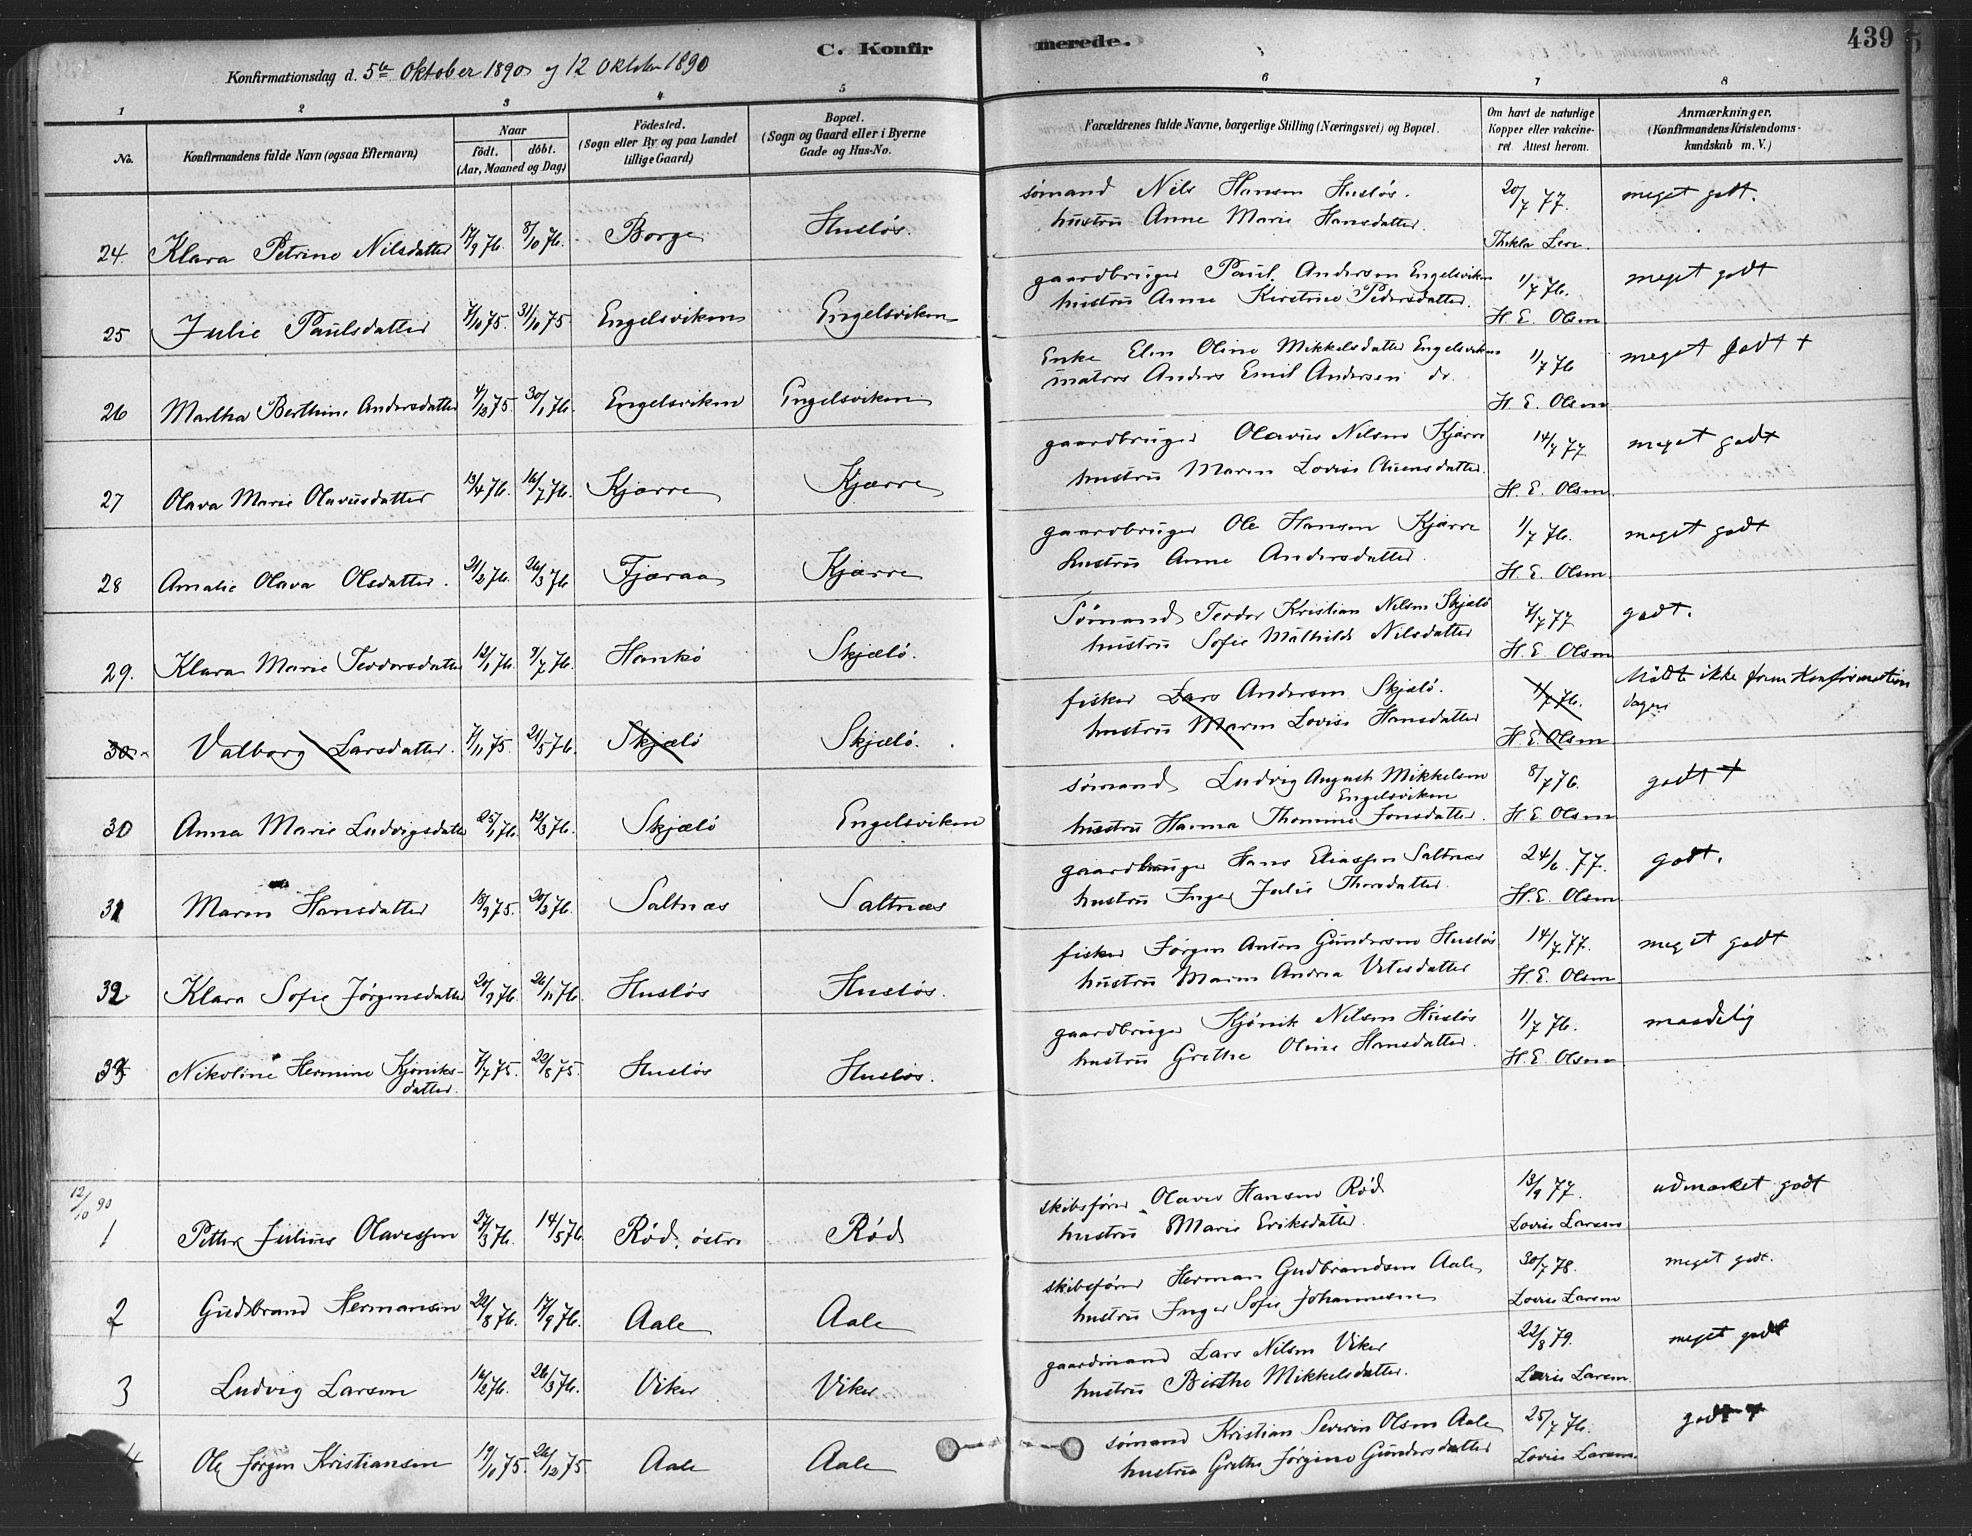 C. Konfirmerede.
439
Konfirmationsdag d. 5te Oktober 1890 og 12 Oktober 1890
1 2 3 4 5 6 7 8
No. Konfirmandens fulde Navn (ogsaa Efternavn) Naar født. døbt. (Aar, Maaned og Dag) Fødested. (Sogn eller By og paa Landet tillige Gaard) Bopæl. (Sogn og Gaard eller i Byerne Gade og Hus-No. Forældrenes fulde Navne, borgerlige Stilling (Næringsvei) og Bopæl. Om havt de naturlige Kopper eller vakcineret. Attest herom. Anmærkninger. (Konfirmandens Kristendomskundskab m. V.)
sømand Nils Hansen Husløs. 20/7 77. meget godt.
hustru Anne Marie Hansdatter.
24. Klara Petrine Nilsdatter 17/9 76. 8/10 76. Borge Husløs. Thekla
gaardbruger Paul Andersen Engelsviken 1/7 76. meget godt
hustru Anne Kirstine Pedersdatter.
25 Julie Paulsdatter 7/10 75. 31/10 75. Engelsviken Engelsviken H. E. Olsen
Enke Elen Oline Mikkelsdatter Engelsviken 1/7 76 meget godt +
matros Anders Emil Andersen do.
26 Martha Berthine Andersdatter 4/12 75. 30/1 76. Engelsviken Engelsviken H. E. Olsen
gaardbruger Olavus Nilsen Kjærre 14/7 77 meget godt
hustru Maren Lovise
27 Olava Marie Olavusdatter 13/4 76. 16/7 76. Kjærre Kjærre H. E. Olsen
gaardbruger Ole Hansen Kjærre 1/7 76. meget godt
hustru Anne Andersdatter.
28 Amalie Olava Olsdatter. 21/2 76. 26/3 76 Fjæraa Kjærre H. E. Olsen
Sømand Teodor Kristian Nilsen Skjælø 7/7 77 godt.
hustru Sofie Mathilde Nilsdatter
29. Klara Marie Teodorsdatter 12/1 76. 9/7 76. Hankø Skjælø. H. E. Olsen
fisker Lars Andersen Skjælø. 1/7 76. Mødte ikke frem Konfirmationsdagen
hustru Maren Lovise Hansdatter
30 Valborg Larsdatter. 7/11 75. 21/5 76. Skjælø Skjælø. H. E. Olsen
sømand Ludvig August Mikkelsen Engelsviken 8/7 76. godt +
hustru Hanna Thomine Jonsdatter.
30 Anna Marie Ludvigsdatter 25/1 76. 12/3 76. Skjælø Engelsviken H. E. Olsen
gaardbruger Hans Eliassen Saltnæs 24/6. 77. godt.
hustru Inger Julie Thorsdatter.
31 Maren Hansdatter 18/9 75. 20/2 76. Saltnæs Saltnæs H. E. Olsen
fisker Jørgen Anton Gundersen Husløs 14/7 77. meget godt
hustru Maren Andrea
32 Klara Sofie Jørgensdatter 20/9 76. 26/11 76. Husløs Husløs. H. E. Olsen
gaardbruger Kjønik Nilsen Husløs 1/7 76. maadelig
hustru Grethe Oline Hansdatter.
33 Nikoline Hermine Kjøniksdatter. 7/7 75. 22/8 75. Husløs Husløs. H. E. Olsen
12/10 90
skibsfører Olaves Hansen Rød 13/9 77. udmærket godt
1 Petter Julius Olavessen 27/3 76. 14/5 76. Rød, østre Rød hustru Marie Eriksdatter. Lovise Larsen
skibsfører Herman Gudbrandsen Aale 30/7 78. meget godt.
2 Gudbrand Hermansen 22/8 76. 17/9 76. Aale Aale hustru Inger Sofie Johannesen Lovise Larsen
gaardmand Lars Nilsen Viker 22/8 79. meget godt
3 Ludvig Larsen 16/2 76. 26/3 76. Viker Viker hustru Birthe Mikkelsdatter. Lovise Larsen
sømand Kristian Severin Olsen Aale 25/7 76. godt
4. Ole Jørgen Kristiansen 19/10 75. 26/12 75 Aale Aale hustru Grethe Jørgine Gundersdatter Lovise Larsen